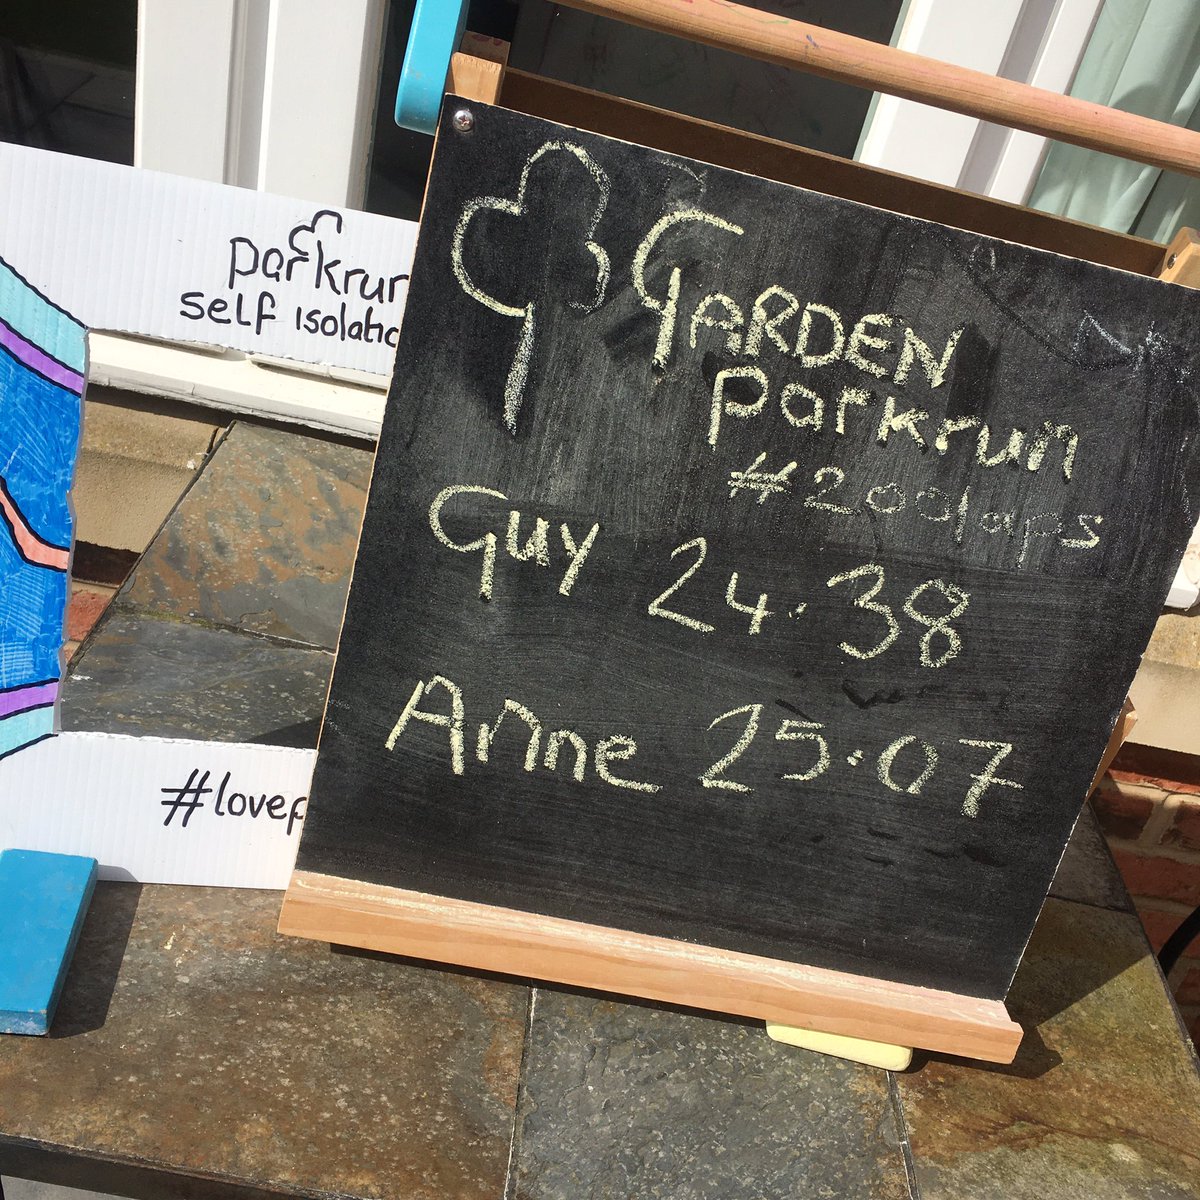 parkrun
self isolatio
#lovep
GARDEN
parkrun
#200laps
Guy 24.38
Anne 25.07